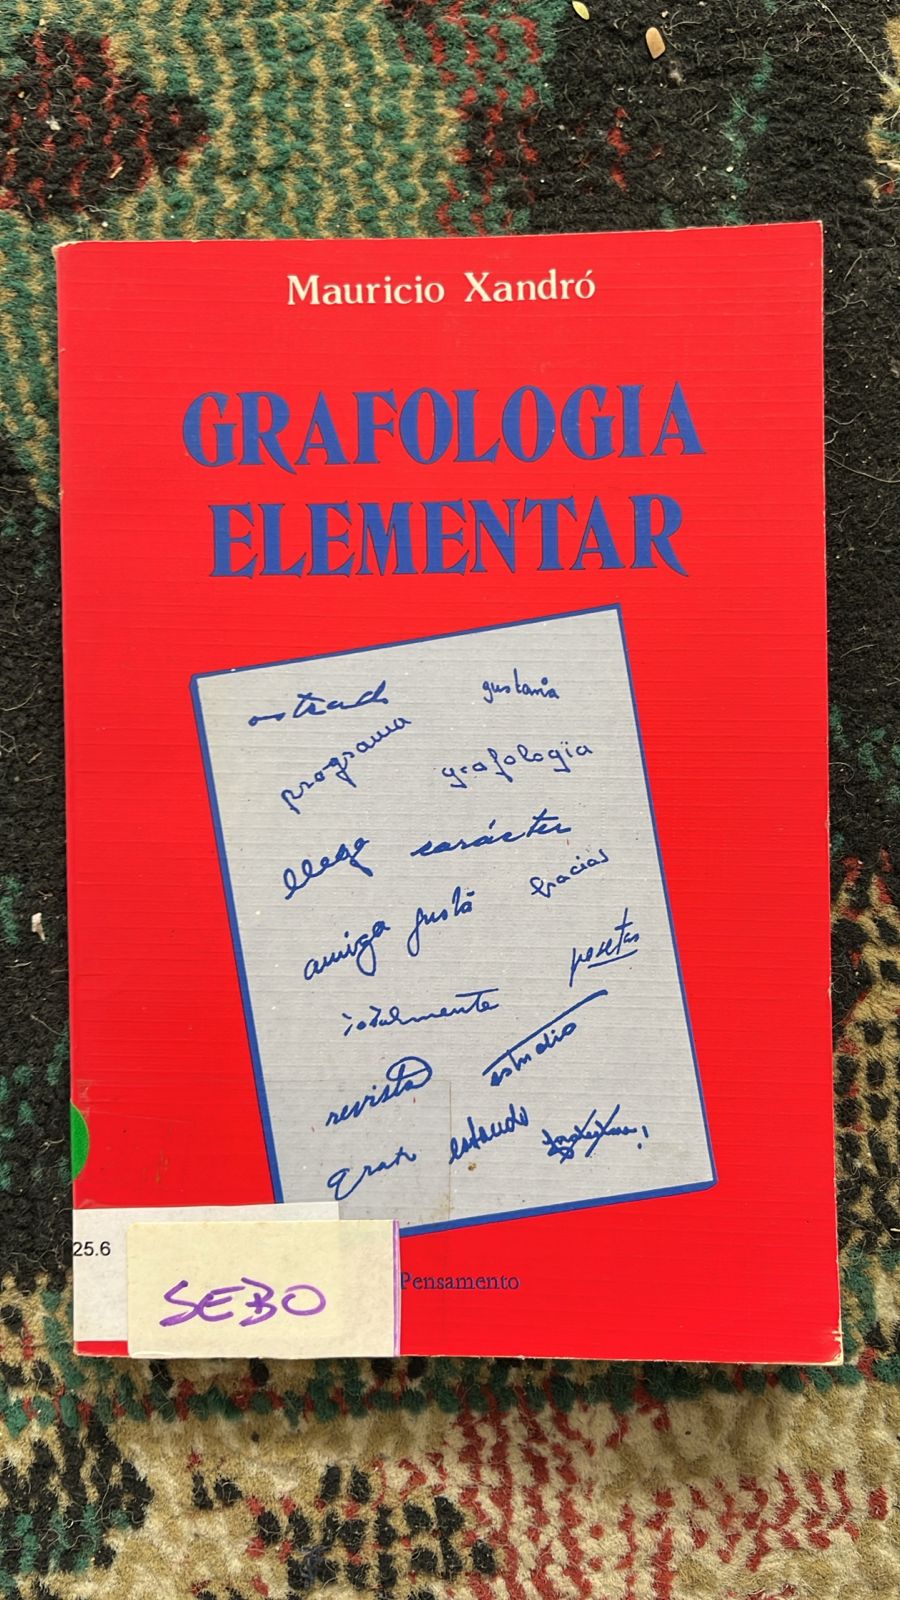 Mauricio Xandró
GRAFOLOGIA
ELEMENTAR
gustaria
programa
grafologia
llega carácter
amiga gustà gracias
pesetas
totalmente
revista estudio
gran estando
25.6
SEBO
Pensamento